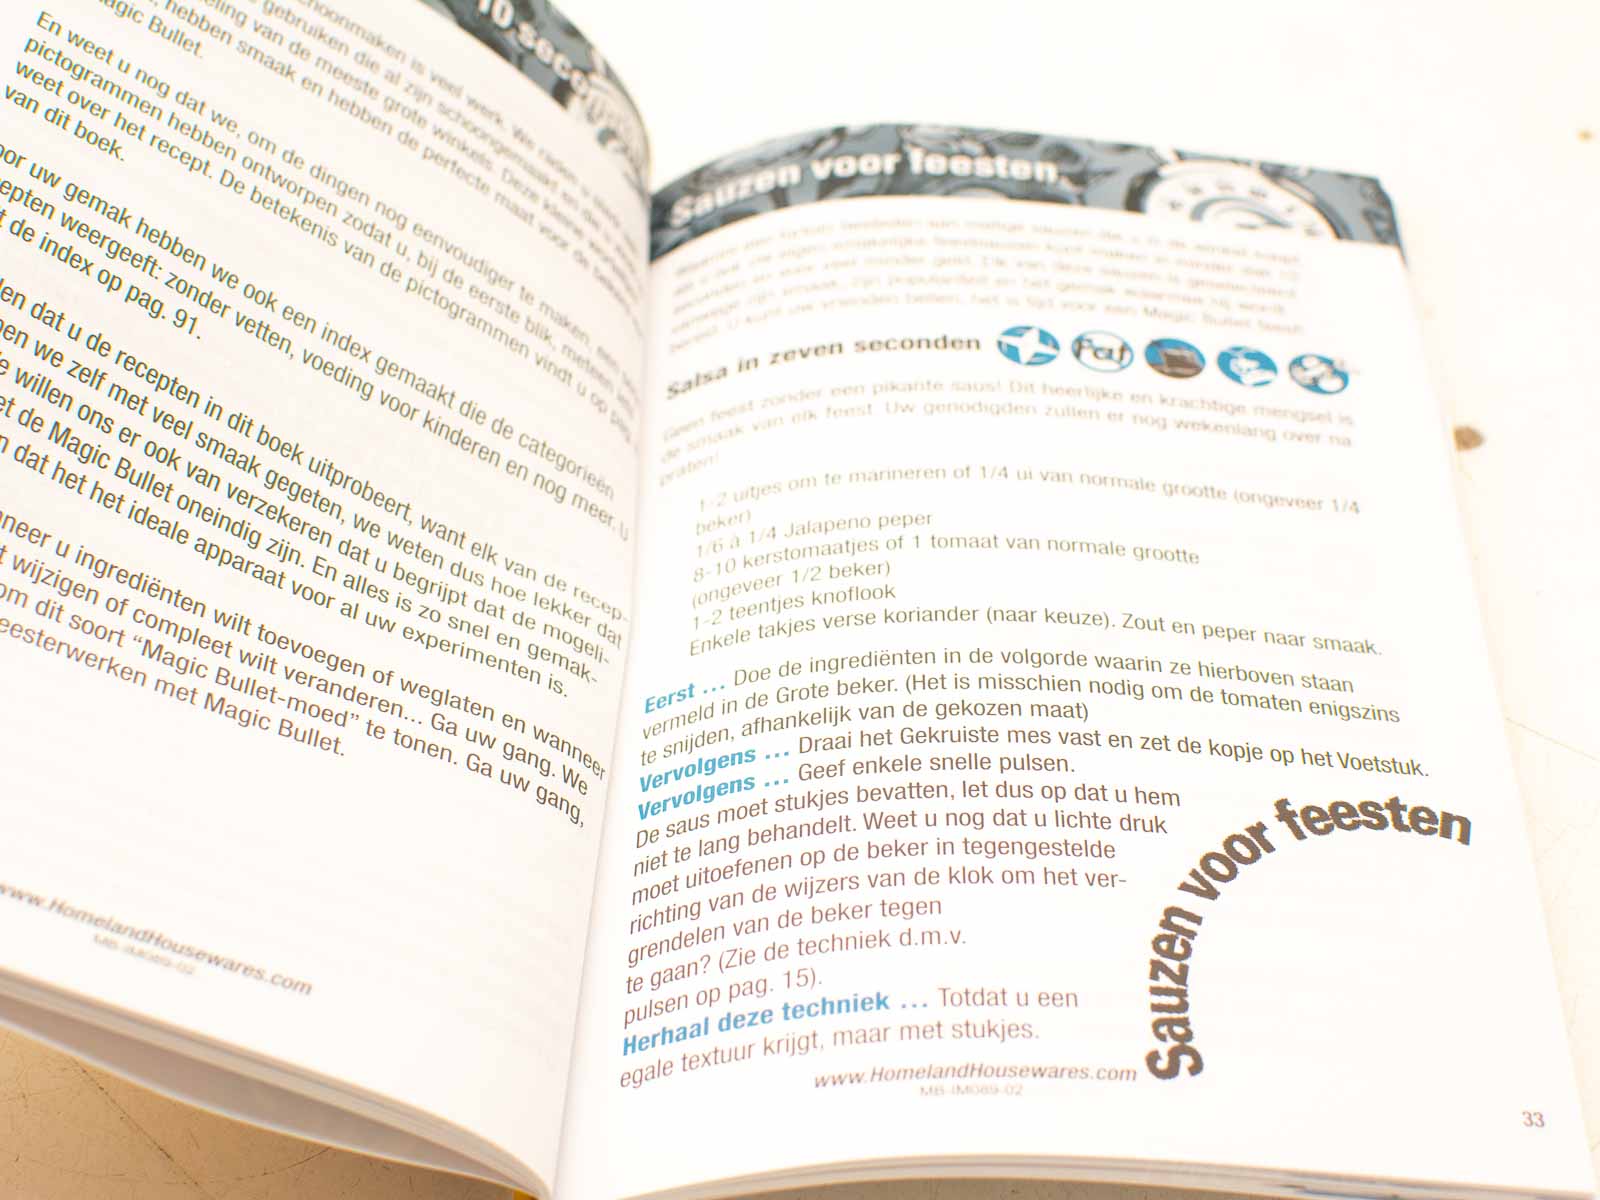 10 seco
schoonmaken is veel werk. We raden u aan
gebruiken die al zijn schoongemaakt en die u
ling van de meeste grote winkels. Deze kleine worteltjes
hebben smaak en hebben de perfecte maat voor de bekers
Magic Bullet.
En weet u nog dat we, om de dingen nog eenvoudiger te maken, een
pictogrammen hebben ontworpen zodat u, bij de eerste blik, meteen
weet over het recept. De betekenis van de pictogrammen vindt u op pag.
van dit boek.
oor uw gemak hebben we ook een index gemaakt die de categorieën
epten weergeeft: zonder vetten, voeding voor kinderen en nog meer. U
t de index op pag. 91.
en dat u de recepten in dit boek uitprobeert, want elk van de recep-
ben we zelf met veel smaak gegeten, we weten dus hoe lekker dat
e willen ons er ook van verzekeren dat u begrijpt dat de mogeli-
et de Magic Bullet oneindig zijn. En alles is zo snel en gemak-
n dat het het ideale apparaat voor al uw experimenten is.
nneer u ingrediënten wilt toevoegen of weglaten en wanneer
t wijzigen of compleet wilt veranderen... Ga uw gang. We
om dit soort “Magic Bullet-moed” te tonen. Ga uw gang,
eesterwerken met Magic Bullet.
www.HomelandHousewares.com
MB-IM089-02
Sauzen voor feesten
seconden en voor veel minder geld. Elk van deze sauzen is geselecteerd
vanwege zijn smaak, zijn populariteit en het gemak waarmee hij wordt
bereid. U kunt uw vrienden bellen, het is tijd voor een Magic Bullet feest!
Salsa in zeven seconden
Paf
Geen feest zonder een pikante saus! Dit heerlijke en krachtige mengsel is
de smaak van elk feest. Uw genodigden zullen er nog wekenlang over na
praten!
1-2 uitjes om te marineren of 1/4 ui van normale grootte (ongeveer 1/4
beker)
1/6 à 1/4 Jalapeno peper
8-10 kerstomaatjes of 1 tomaat van normale grootte
(ongeveer 1/2 beker)
1-2 teentjes knoflook
Enkele takjes verse koriander (naar keuze). Zout en peper naar smaak.
Eerst ... Doe de ingrediënten in de volgorde waarin ze hierboven staan
vermeld in de Grote beker. (Het is misschien nodig om de tomaten enigszins
te snijden, afhankelijk van de gekozen maat)
Vervolgens ... Draai het Gekruiste mes vast en zet de kopje op het Voetstuk.
Vervolgens ... Geef enkele snelle pulsen.
De saus moet stukjes bevatten, let dus op dat u hem
niet te lang behandelt. Weet u nog dat u lichte druk
moet uitoefenen op de beker in tegengestelde
richting van de wijzers van de klok om het ver-
grendelen van de beker tegen
te gaan? (Zie de techniek d.m.v.
pulsen op pag. 15).
Herhaal deze techniek ... Totdat u een
egale textuur krijgt, maar met stukjes.
Sauzen voor feesten
www.HomelandHousewares.com
MB-IM089-02
33